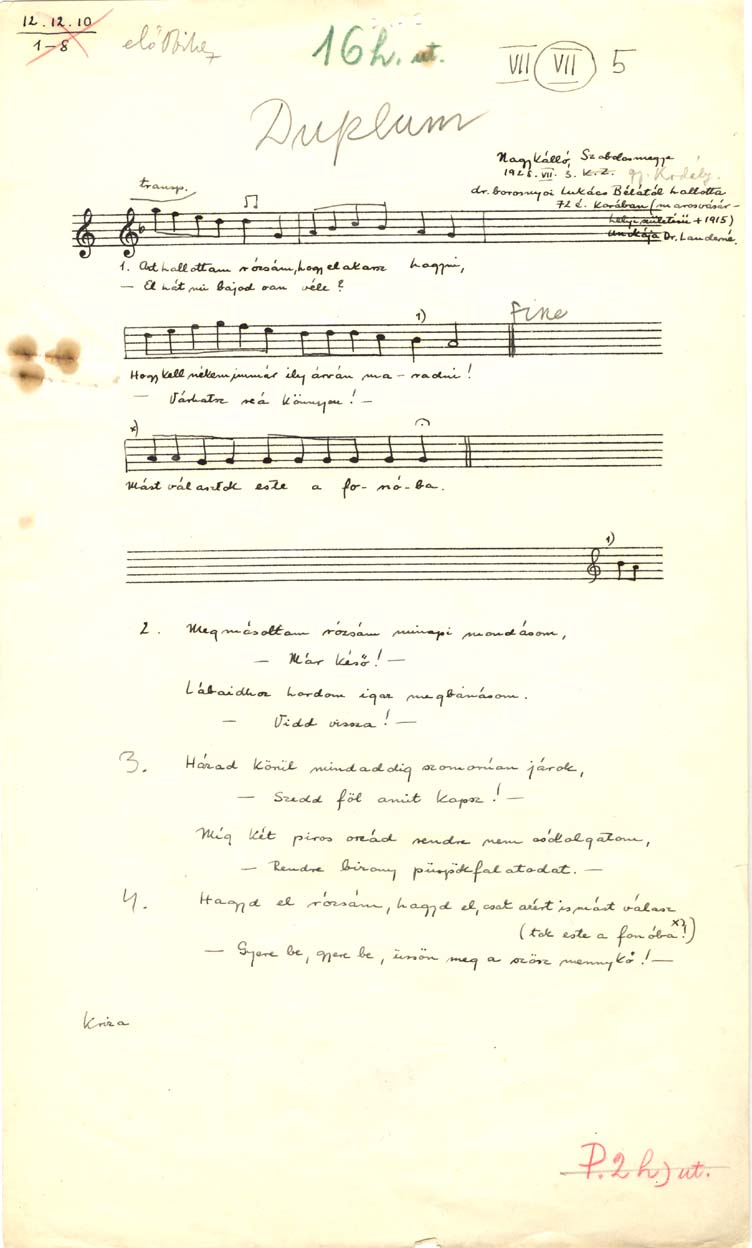 12.12.10
1-8
16h. ut.
VII VII 5
Duplum
Nagykálló, Szabolcsmegye
192 . VII. 3. K.Z. gy. Kodály.
dr. borosnyói Lukács Bélától hallotta
72 é. korában (marosvásár-
helyi születésü + 1915)
unokája Dr. Lauderné.
transp.
1. Azt hallottam rózsám, hogy el akarsz hagyni,
— El hát mi bajod van véle?
1) Fine
Hogy kell nékem immár ily árván ma-radni!
— Várhatsz reá könnyen! —
x)
Mást választok este a fo-nó-ba.
1)
2. Megmásoltam rózsám minapi mondásom,
— Már késő! —
Lábaidhoz hordom igaz megbánásom.
— Vidd vissza! —
3. Házad körül mindaddig szomorúan járok,
— Szedd föl amit kapsz! —
Míg két piros orcád rendre nem csókolgatom,
— Rendre bizony püspökfalatodat. —
4. Hagyd el rózsám, hagyd el, csak azért is mást válasz
(tok este a fonóba x)!)
— Gyere be, gyere be, üssön meg a szösz mennykő! —
Kriza
P. 2 h) ut.